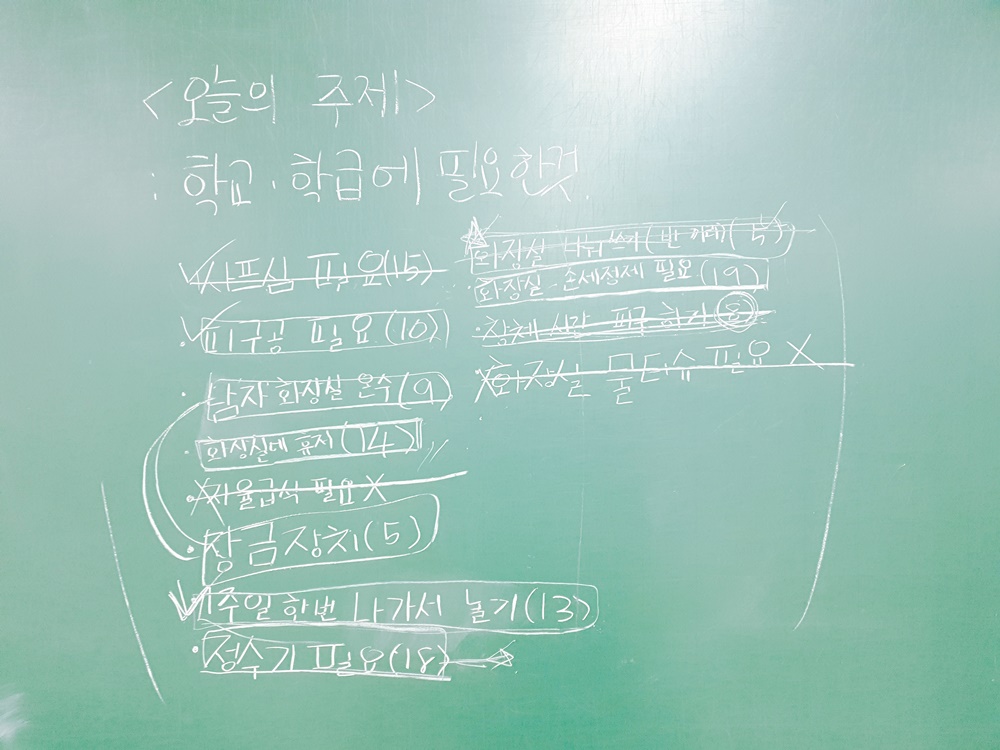 <오늘의 주제>
: 학교·학급에 필요한것.
샤프심 필요(15)
피구공 필요(10)
남자 화장실 온수(9)
화장실에 휴지(14)
자율급식 필요
잠금장치(5)
1주일 한번 나가서 놀기(13)
정수기 필요(18)
화장실 나눠 쓰기(반 아래)(5)
화장실 손세정제 필요(19)
피구 하기
화장실 물티슈 필요